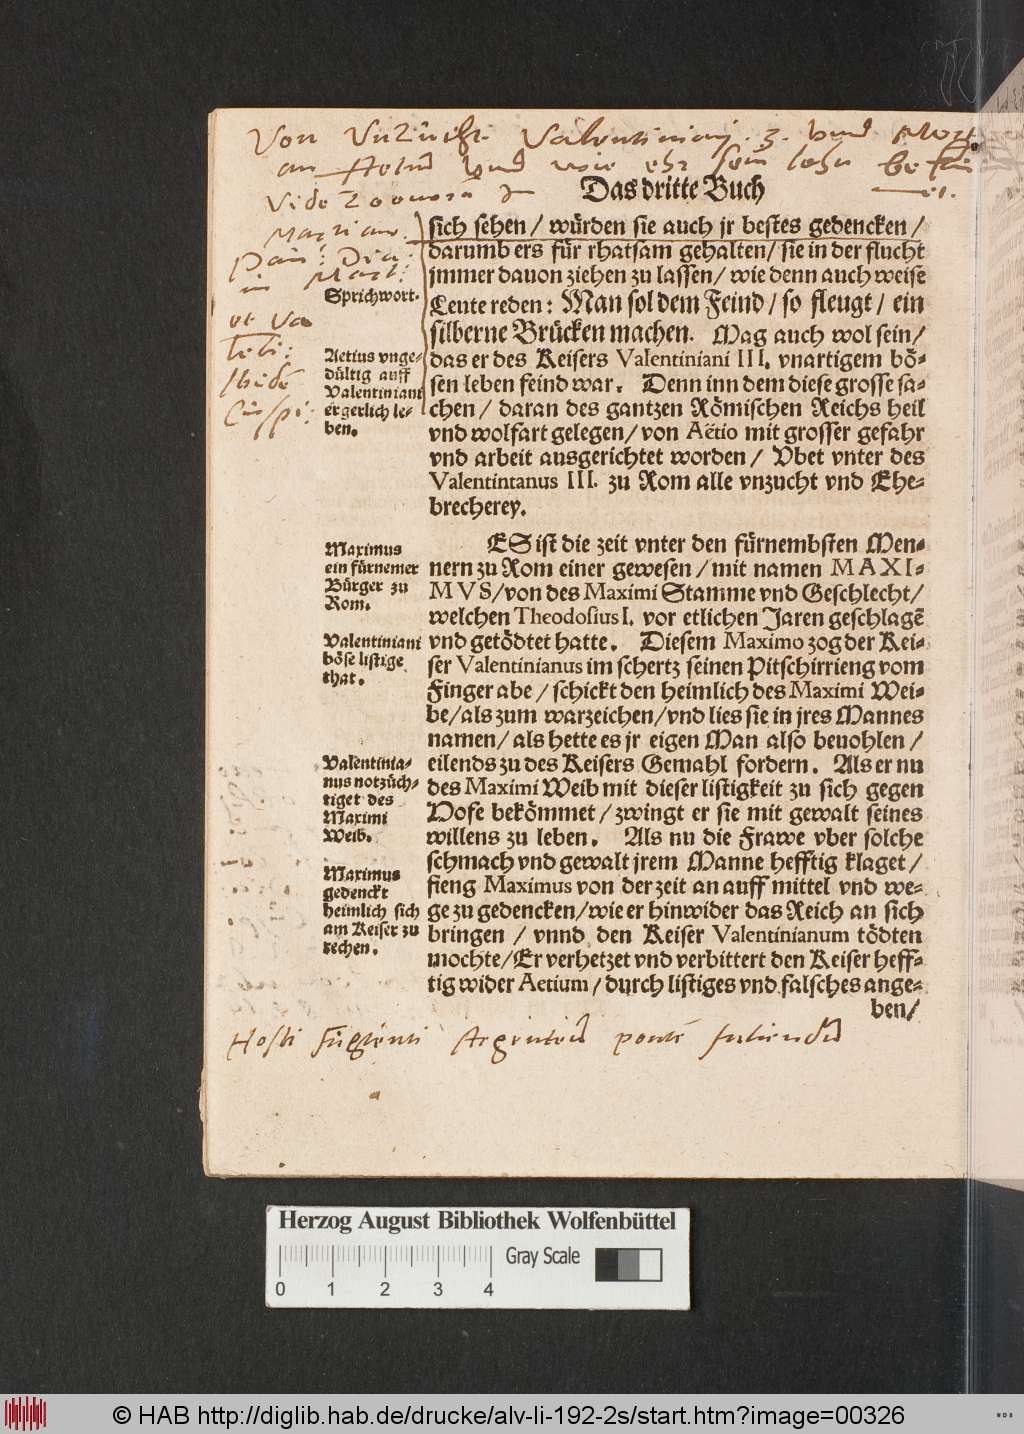 Von Unzucht Valentiniani 3. vnd Mordt
an Aetio vnd wie ehr sein lohn bekum
Vide Zoonora
Das dritte Buch
met.
Marian.
sich sehen / würden sie auch jr bestes gedencken /
darumb ers für rhatsam gehalten / sie in der flucht
jmmer dauon ziehen zu lassen / wie denn auch weise
Sprichwort.
Leute reden: Man sol dem Feind / so fleugt / ein
silberne Brücken machen. Mag auch wol sein /
Aetius vnge-
dültig auff
Valentiniani
ergerlich le-
ben.
das er des Keisers Valentiniani III. vnartigem bö-
sen leben feind war. Denn inn dem diese grosse sa-
chen / daran des gantzen Römischen Reichs heil
vnd wolfart gelegen / von Aëtio mit grosser gefahr
vnd arbeit ausgerichtet worden / Vbet vnter des
Valentintanus III. zu Rom alle vnzucht vnd Ehe-
brecherey.
Maximus
ein fürnemer
Bürger zu
Rom.
ES ist die zeit vnter den fürnembsten Men-
nern zu Rom einer gewesen / mit namen MAXI-
MVS / von des Maximi Stamme vnd Geschlecht /
welchen Theodosius I. vor etlichen Jaren geschlagē
Valentiniani
böse listige
that.
vnd getödtet hatte. Diesem Maximo zog der Kei-
ser Valentinianus im schertz seinen Pitschirrieng vom
Finger abe / schickt den heimlich des Maximi Wei-
be / als zum warzeichen / vnd lies sie in jres Mannes
namen / als hette es jr eigen Man also beuohlen /
Valentinia-
nus notzüch-
tiget des
Maximi
Weib.
eilends zu des Keisers Gemahl fordern. Als er nu
des Maximi Weib mit dieser listigkeit zu sich gegen
Hofe bekömmet / zwingt er sie mit gewalt seines
willens zu leben. Als nu die Frawe vber solche
schmach vnd gewalt jrem Manne hefftig klaget /
Maximus
gedenckt
heimlich sich
am Keiser zu
rechen.
fieng Maximus von der zeit an auff mittel vnd we-
ge zu gedencken / wie er hinwider das Reich an sich
bringen / vnnd den Keiser Valentinianum tödten
mochte / Er verhetzet vnd verbittert den Keiser heff-
tig wider Aetium / durch listiges vnd falsches ange-
ben /
Hosti fugienti Argenteū pontē faciendū
Herzog August Bibliothek Wolfenbüttel
Gray Scale
0 1 2 3 4
© HAB http://diglib.hab.de/drucke/alv-li-192-2s/start.htm?image=00326